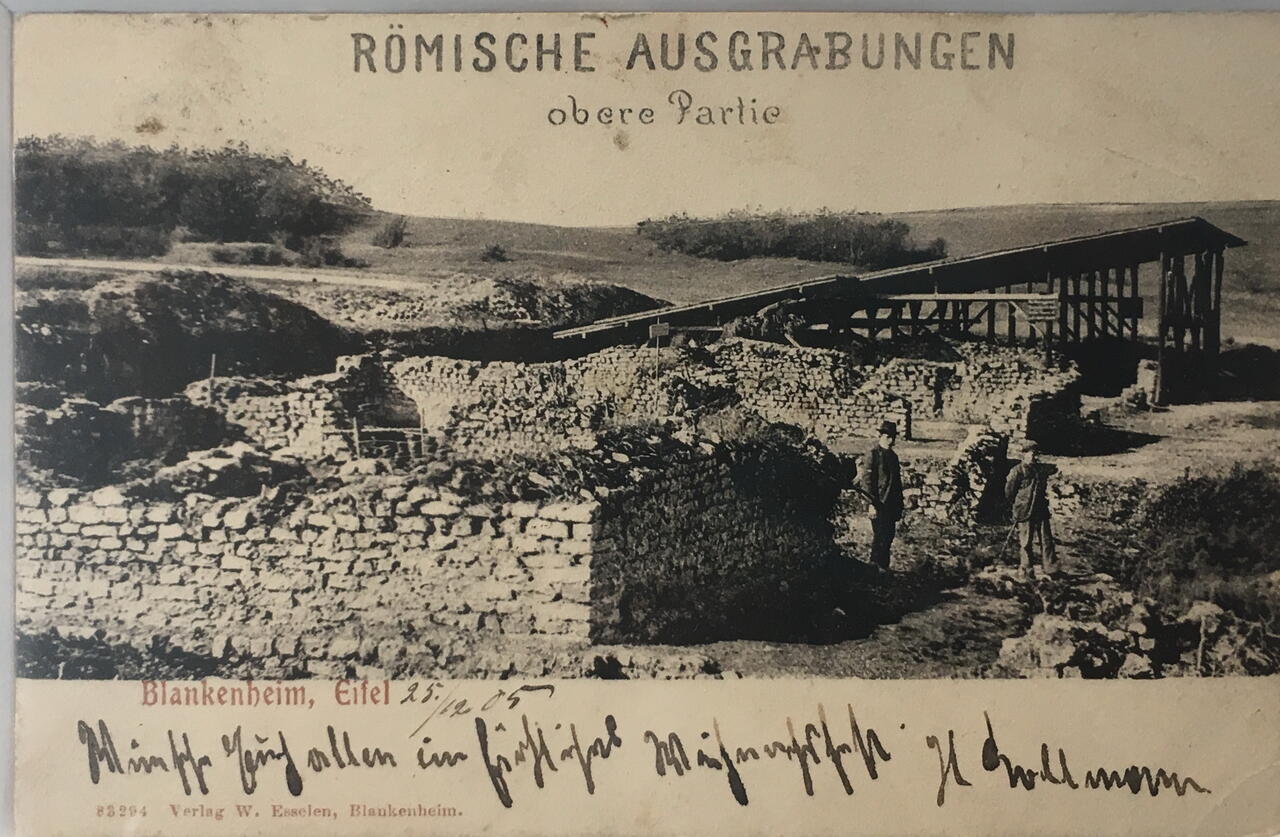 RÖMISCHE AUSGRABUNGEN
obere Partie
Blankenheim, Eifel 25./12 05
Wünsche Euch allen ein fröhliches Weihnachtsfest
83294 Verlag W. Esselen, Blankenheim.